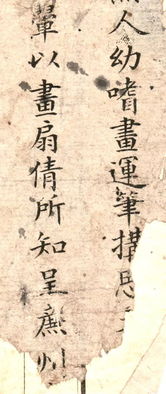 人幼嗜畫運筆搆思
輩以畫扇倩所知呈